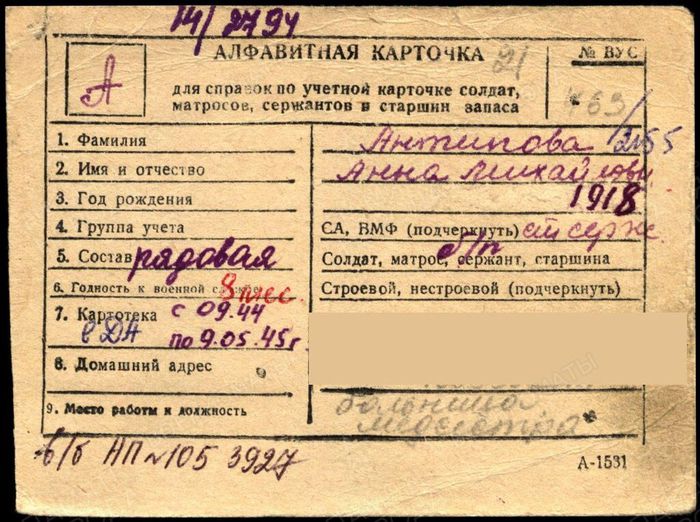 14/2794
АЛФАВИТНАЯ КАРТОЧКА
21
№ ВУС
А
для справок по учетной карточке солдат,
матросов, сержантов и старшин запаса
463/2155
1. Фамилия Антипова
2. Имя и отчество Анна Михайловн
3. Год рождения 1918
4. Группа учета СА, ВМФ (подчеркнуть) ст серж.
5. Состав рядовая б/п Солдат, матрос, сержант, старшина
6. Годность к военной службе Строевой, нестроевой (подчеркнуть)
8 мес.
7. Картотека с 09.44
в ДА по 9.05.45 г.
8. Домашний адрес
9. Место работы и должность больница
медсестра
в/б НП №105 3927
А-1531